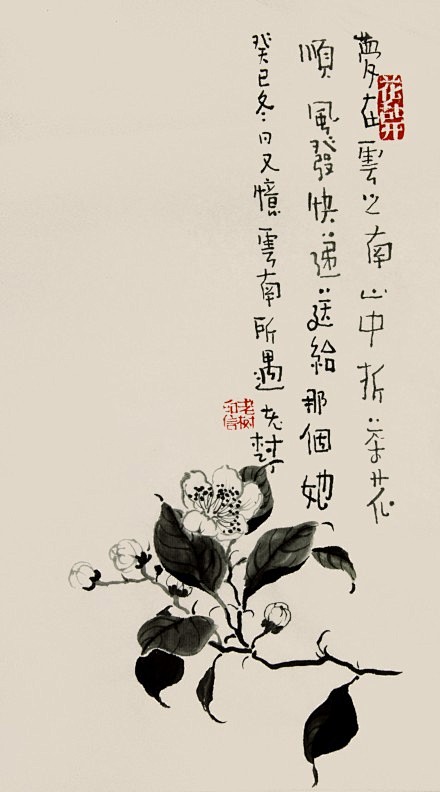 花乱开
夢在雲之南山中折茶花
順風發快遞送給那個她
癸巳冬日又憶雲南所遇 老樹
老树